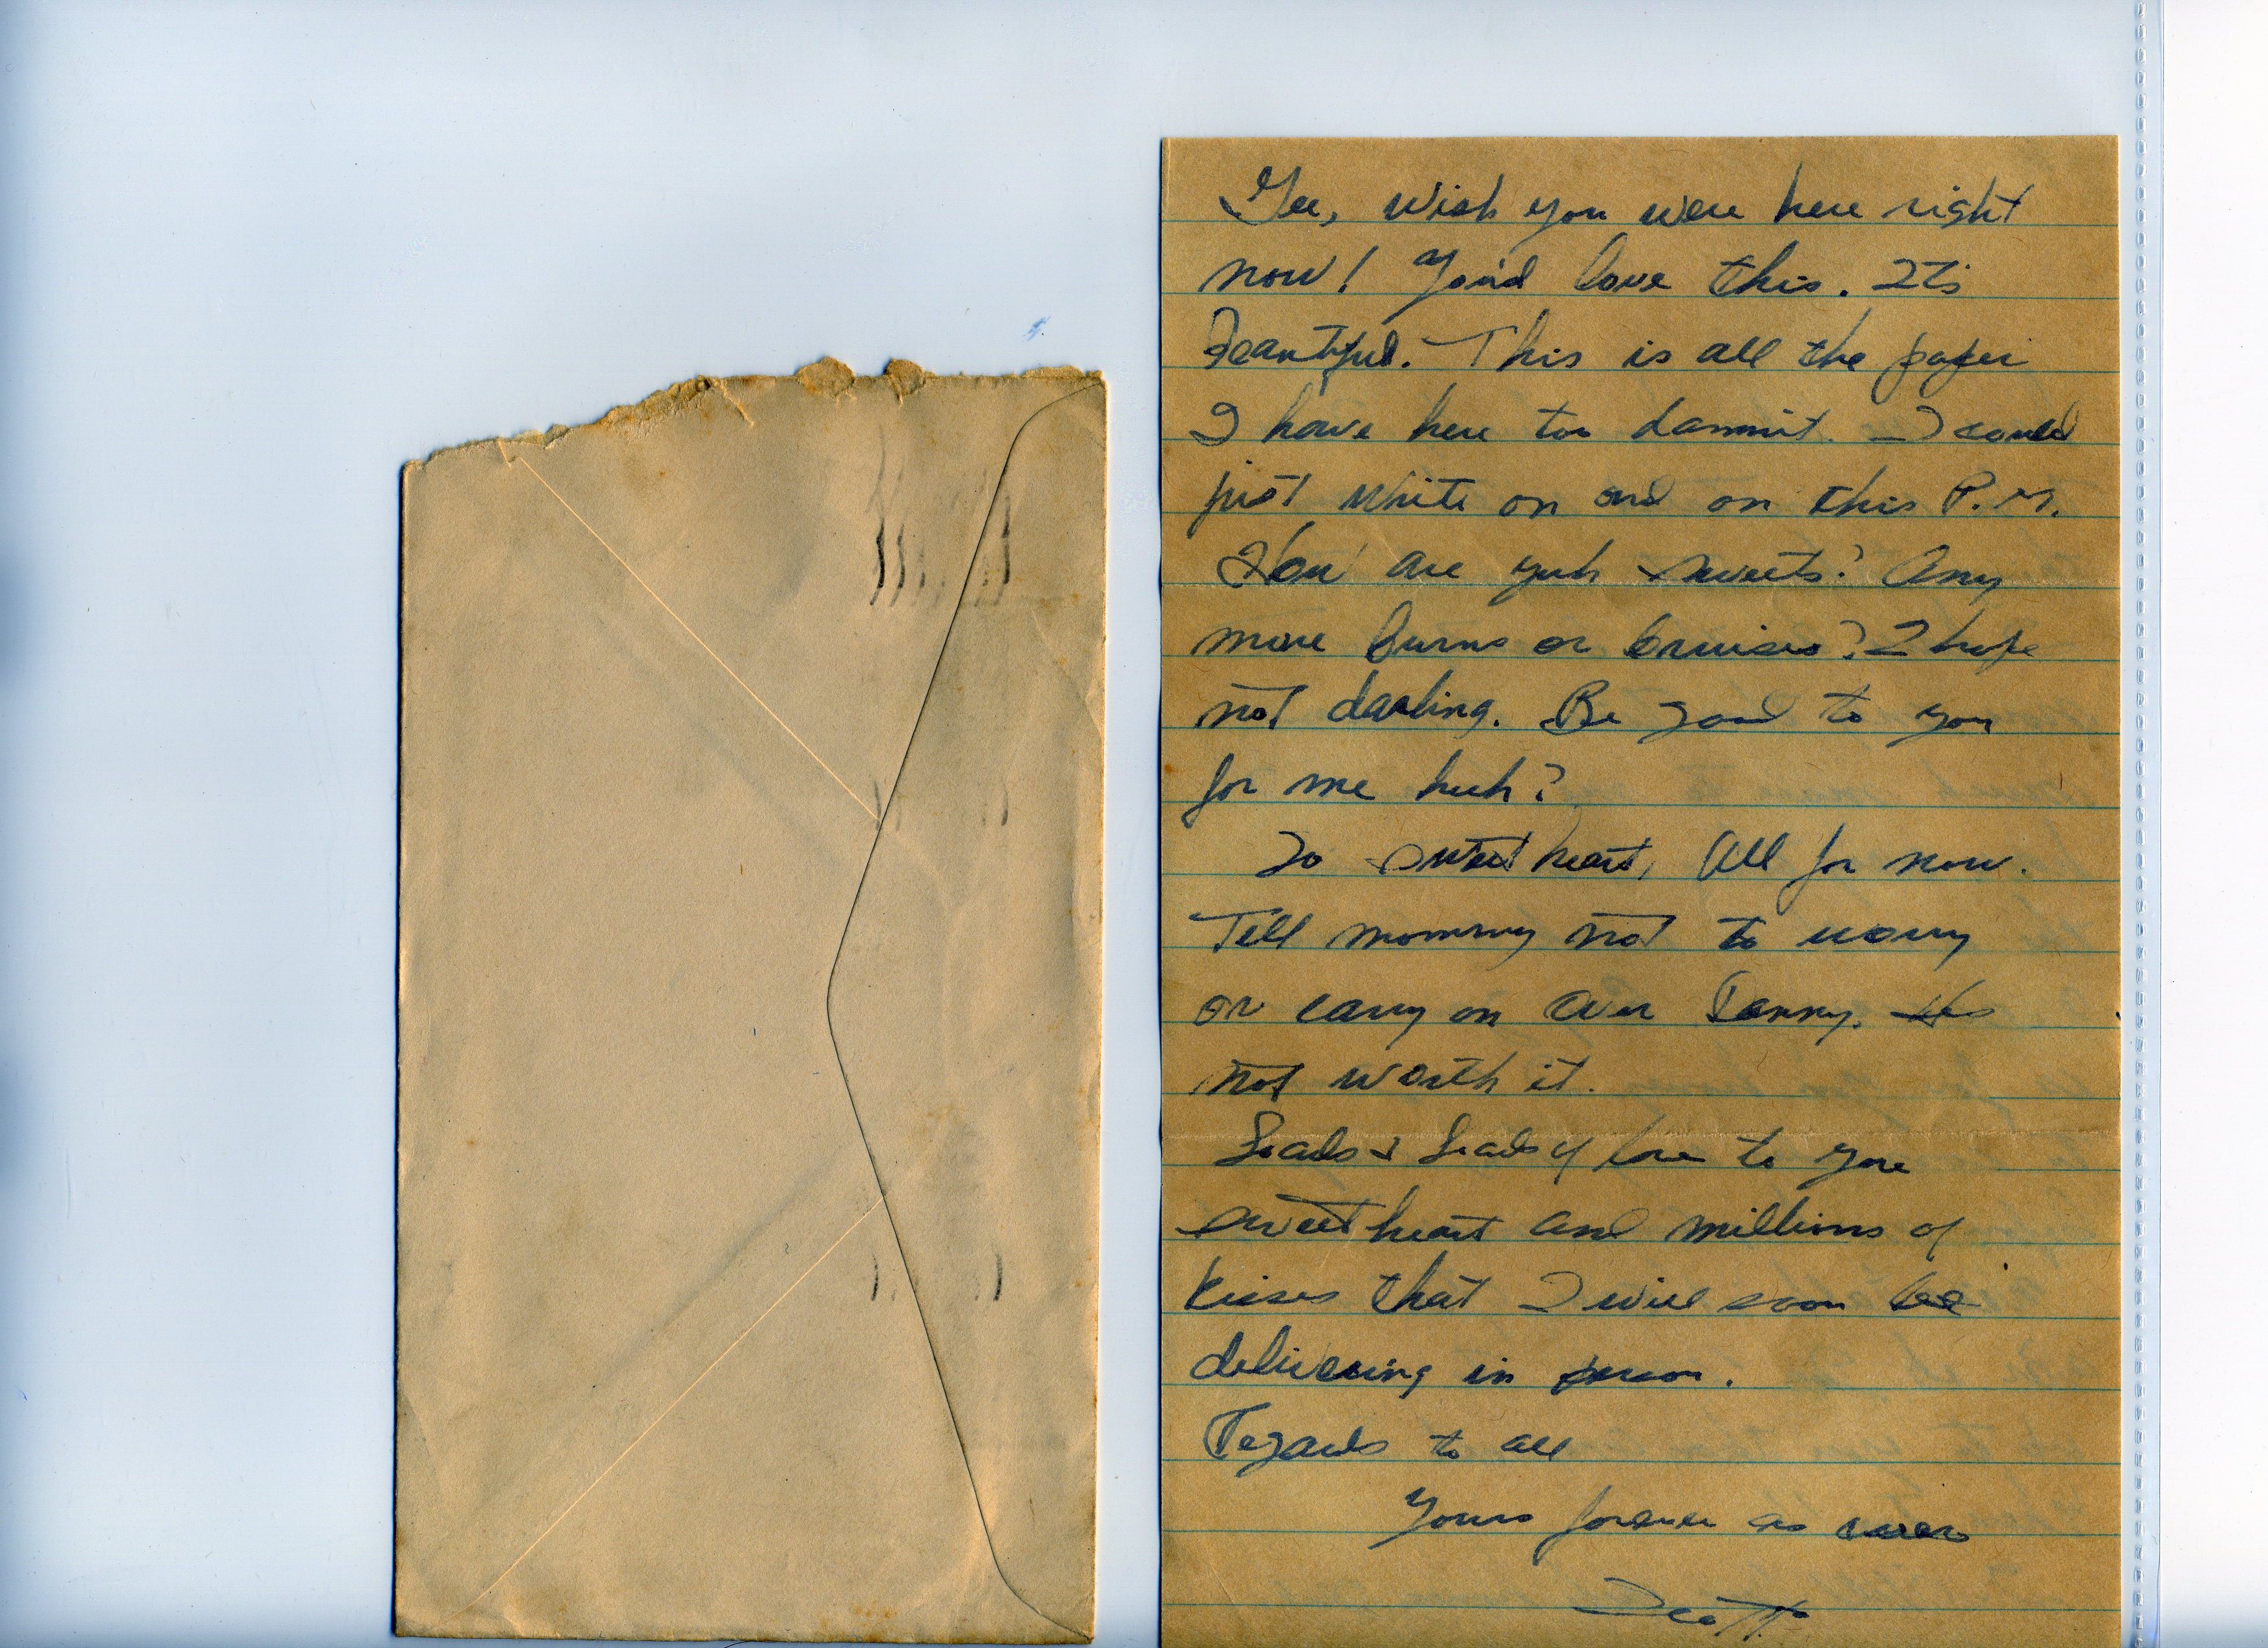 Gee, wish you were here right
now! You'd love this. It's
Beautiful. This is all the paper
I have here too dammit. I could
just write on and on this P.M.
How are yuh sweets? Any
more burns or bruises? I hope
not darling. Be good to you
for me huh?
So sweetheart, All for now.
Tell mommy not to worry
or carry on over He's
not worth it.
Loads & Loads of love to you
sweetheart and millions of
kisses that I will soon be
delivering in person.
Regards to all
Yours forever as ever
Scott